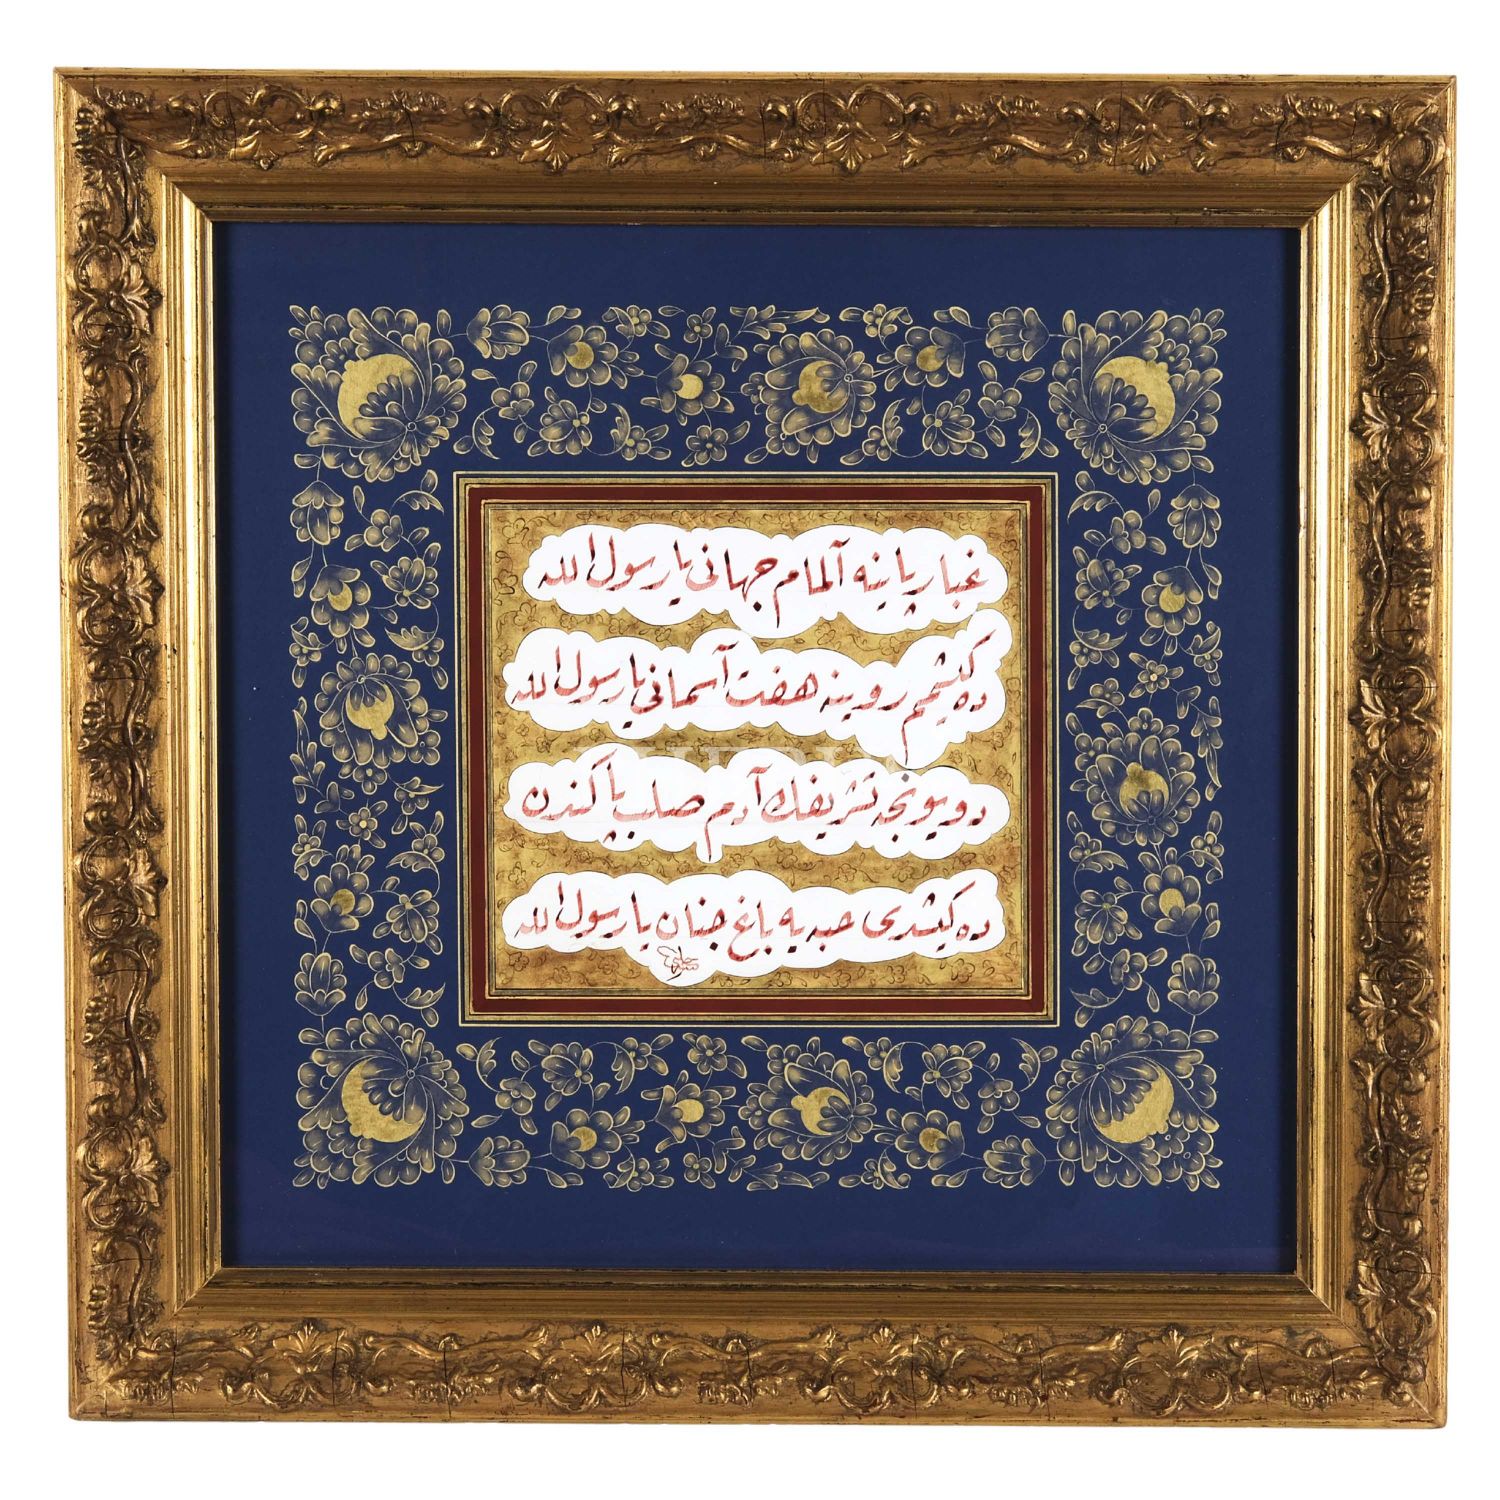 غبار پاینه آلمام جهانی یا رسول الله
ده كیشمم روینه هفت آسمانی یا رسول الله
دویونجه تشریفك آدم صلب پاكندن
ده كیشدی حبه یه باغ جنان یا رسول الله